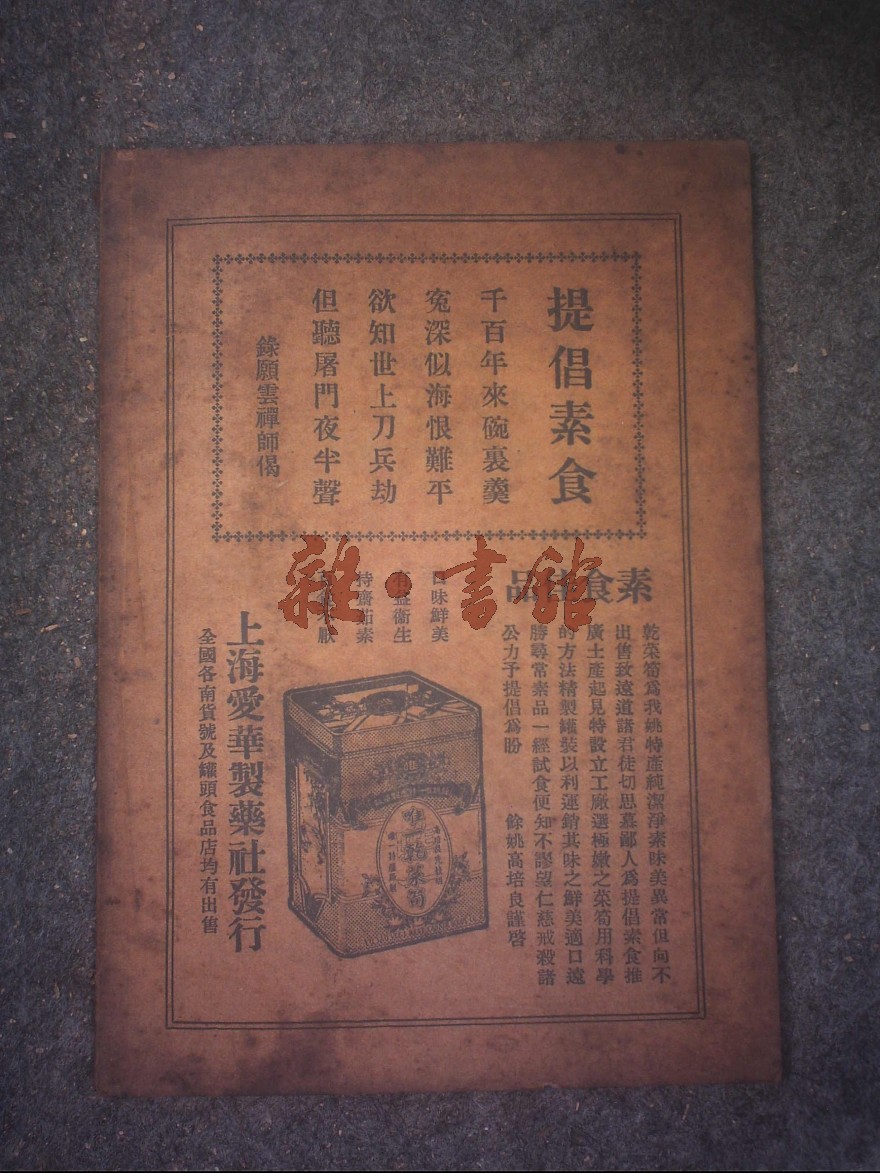 提倡素食
千百年來碗裏羹
寃深似海恨難平
欲知世上刀兵劫
但聽屠門夜半聲
錄願雲禪師偈
雜·書館
素食 品
乾菜筍爲我姚特產純潔淨素味美異常但向不
出售致遠道諸君徒切思慕鄙人爲提倡素食推
廣土產起見特設立工廠選極嫩之菜筍用科學
的方法精製罐裝以利運銷其味之鮮美適口遠
勝尋常素品一經試食便知不謬望仁慈戒殺諸
公力予提倡爲盼 餘姚高培良謹啓
口味鮮美
有益衞生
持齋茹素
唯一乾菜筍
上海愛華製藥社發行
全國各南貨號及罐頭食品店均有出售